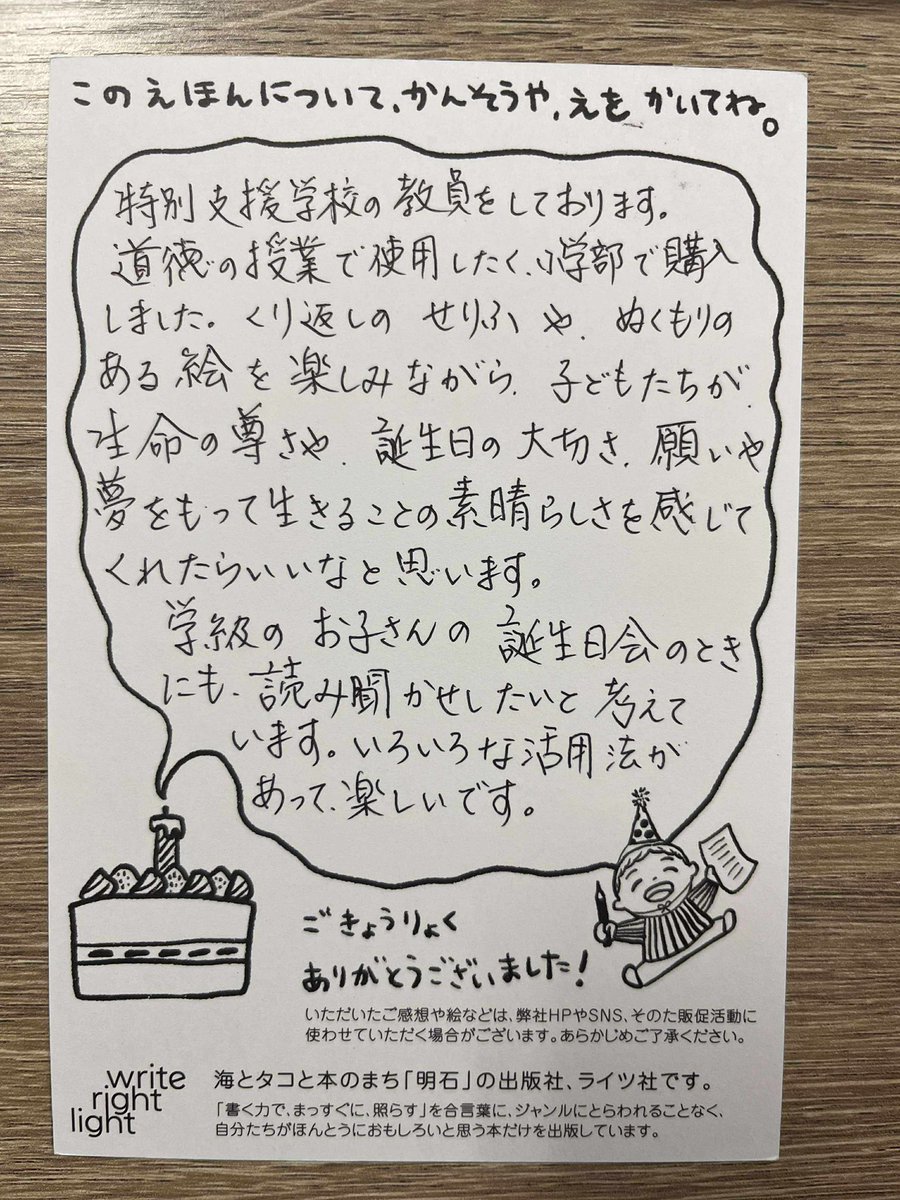 このえほんについて、かんそうや、えを かいてね。
特別支援学校の教員をしております。
道徳の授業で使用したく、小学部で購入
しました。くり返しの せりふ や、ぬくもりの
ある絵を楽しみながら、子どもたちが、
生命の尊さや、誕生日の大切さ、願いや
夢をもって生きることの素晴らしさを感じて
くれたらいいなと思います。
学級の お子さんの 誕生日会のとき
にも、読み聞かせしたいと 考えて
います。いろいろな活用法が
あって、楽しいです。
ごきょうりょく
ありがとうございました!
いただいたご感想や絵などは、弊社HPやSNS、そのた販促活動に
使わせていただく場合がございます。あらかじめご了承ください。
write
right
light
海とタコと本のまち「明石」の出版社、ライツ社です。
「書く力で、まっすぐに、照らす」を合言葉に、ジャンルにとらわれることなく、
自分たちがほんとうにおもしろいと思う本だけを出版しています。